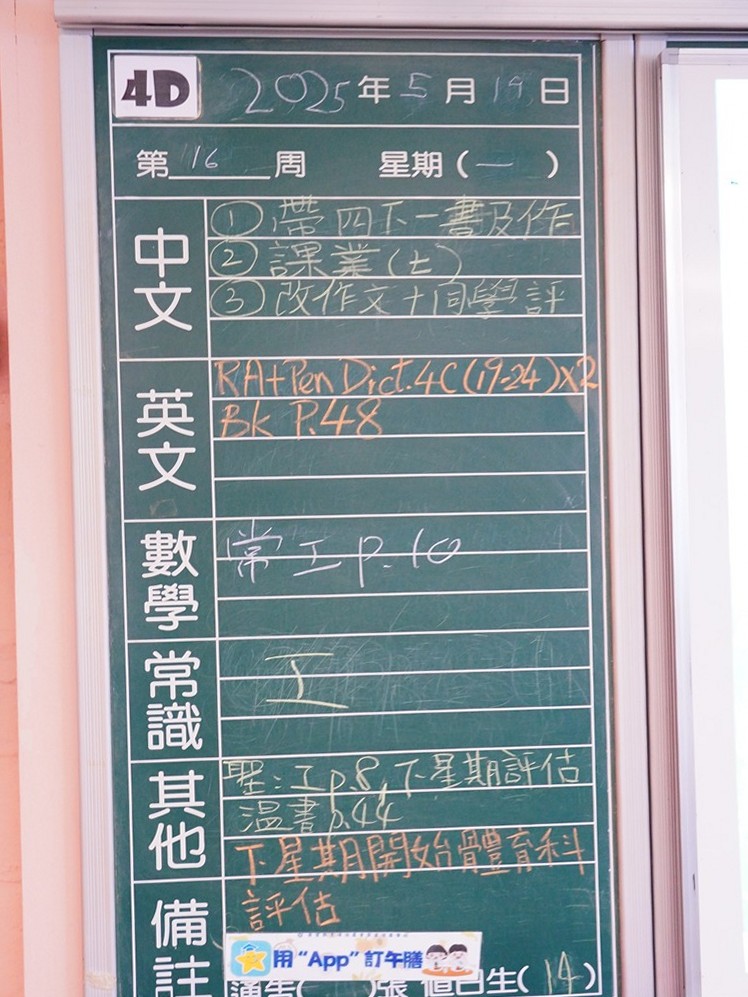 4D 2025年5月19日
第116周 星期(一)
中文
①帶四下一書及作
②課業(七)
③改作文+同學評
英文
RA+Pen Dict.4C(19-24)x2
Bk P.48
數學
常工p.10
常識
工
其他
聖:工p.8,下星期評估
溫書p.44
下星期開始體育科
備註
評估
用“App”訂午膳
張 值日生(14)